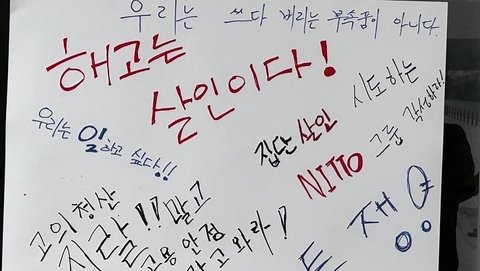 우리는 쓰다 버리는 부속품이 아니다.
해고는
살인이다!
우리는 일하고 싶다!!
집단 살인 시도하는
NITTO 그룹 각성하라!
고의청산
지랄!! 말고
고용안정
하고 와라!
투쟁